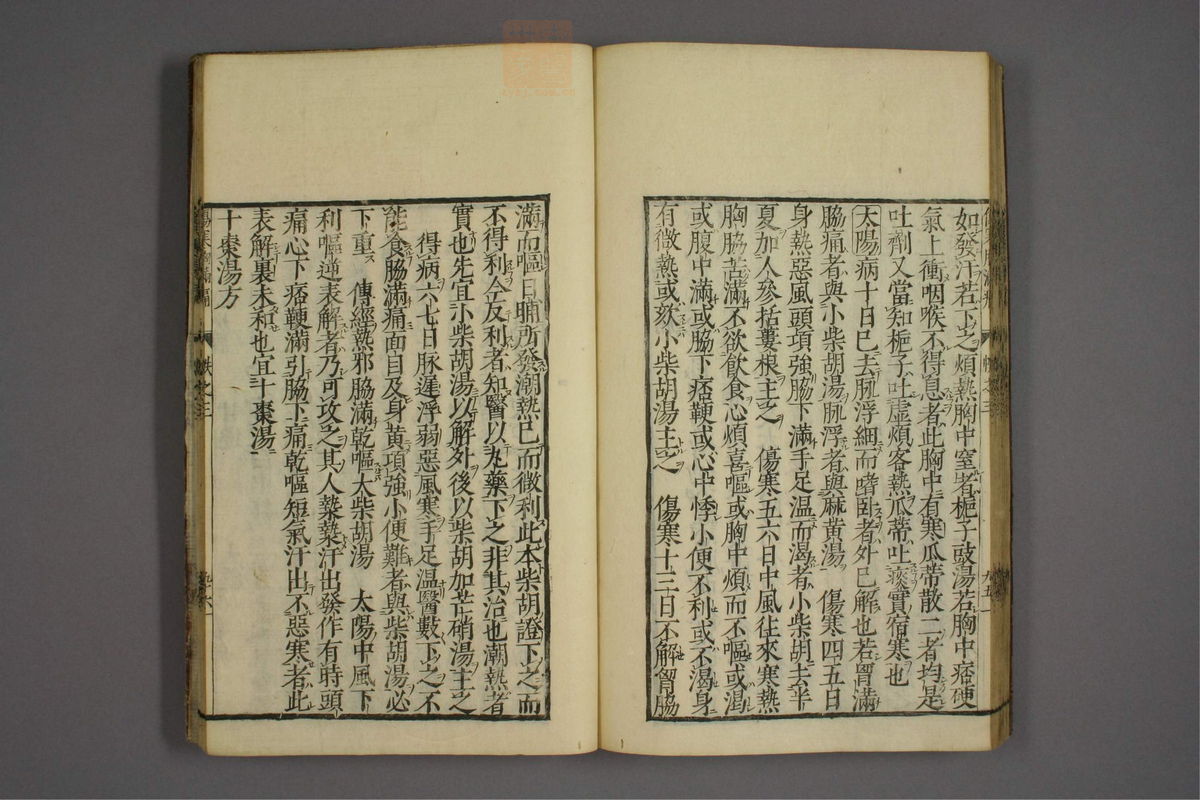 如發汗若下之煩熱胸中窒者梔子豉湯若胸中痞硬
氣上衝咽喉不得息者此胸中有寒瓜蒂散二者均是
吐劑又當知梔子吐虛煩客熱瓜蒂吐痰實宿寒也
太陽病十日已去脉浮細而嗜臥者外已解也若胷滿
脇痛者與小柴胡湯脉浮者與麻黃湯 傷寒四五日
身熱惡風頭項強脇下滿手足溫而渴者小柴胡去半
夏加人參括蔞根主之 傷寒五六日中風往來寒熱
胸脇苦滿不欲飲食心煩喜嘔或胸中煩而不嘔或渴
或腹中滿或脇下痞鞕或心中悸小便不利或不渴身
有微熱或欬小柴胡湯主之 傷寒十三日不解胷脇
滿而嘔日晡所發潮熱已而微利此本柴胡證下之而
不得利今反利者知醫以丸藥下之非其治也潮熱者
實也先宜小柴胡湯以解外後以柴胡加芒硝湯主之
得病六七日脉遲浮弱惡風寒手足溫醫數下之不
能食脇滿痛面目及身黃項強小便難者與柴胡湯必
下重 傳經熱邪脇滿乾嘔大柴胡湯 太陽中風下
利嘔逆表解者乃可攻之其人漐漐汗出發作有時頭
痛心下痞鞕滿引脇下痛乾嘔短氣汗出不惡寒者此
表解裏未和也宜十棗湯
十棗湯方